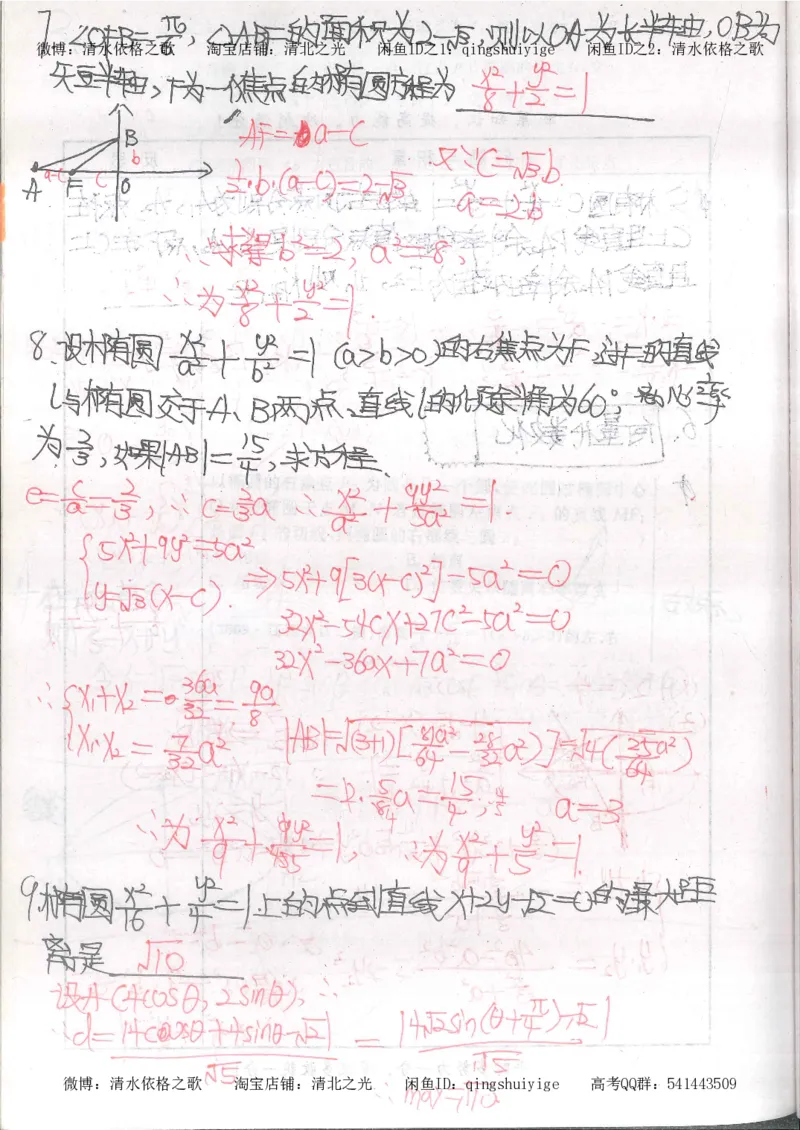 7. ∠OAB=π/6, △ABF的面积为2-√3, 则以OA为长半轴,OB为
微博:清水依格之歌 淘宝店铺:清北之光 闲鱼ID之1:qingshuiyige 闲鱼ID之2:清水依格之歌
短半轴,F为一个焦点的椭圆方程为 x²/8+y²/2=1
AF=a-c
B
b
a-c
c
A F O
1/2·b·(a-c)=2-√3
又∵c=√3b.
a=2b
∴求得b²=2, a²=8,
∴为x²/8+y²/2=1.
8. 设椭圆 x²/a²+y²/b²=1 (a>b>0)的右焦点为F,过F的直线
l与椭圆交于A、B两点、直线l的倾斜角为60°, 离心率
为2/3,如果|AB|=15/4, 求方程.
e=c/a=2/3, ∴c=2/3a x²/a²+9y²/5a²=1
{5x²+9y²=5a²
y=√3(x-c).
⇒5x²+9[3(x-c)²]-5a²=0
32x²-54cx+27c²-5a²=0
32x²-36ax+7a²=0
∴{x₁+x₂=36a/32=9a/8
x₁x₂=7/32a² |AB|=√(3+1)[81a²/64-28/32a²)]=√4(25a²/64)
=2·5/8a=15/4, a=3
∴为x²/9+9y²/45=1, ∴为x²/9+y²/5=1.
9.椭圆x²/16+y²/4=1上的点到直线x+2y-√2=0的最大距
离是 √10
设A(4cosθ, 2sinθ), ∴
∴d=|4cosθ+4sinθ-√2|/√5=|4√2sin(θ+π/4)-√2|/√5
微博:清水依格之歌 淘宝店铺:清北之光 闲鱼ID:qingshuiyige 高考QQ群:541443509
∴max→√10